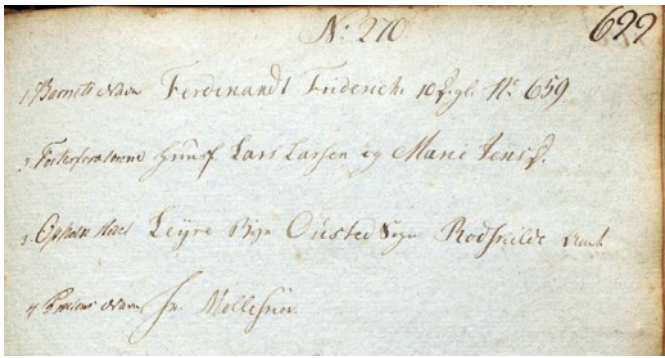 N: 270 622
1, Barnets Navn Ferdinandt Friderich 10 D. gl. No 659
2, Fosterforældrene Huusf Lars Larsen og Marie Jensd.
3, Opholds Sted Leyre Bye Ousted Sogn Rodskilde Amt
4, Præstens Navn Hr.